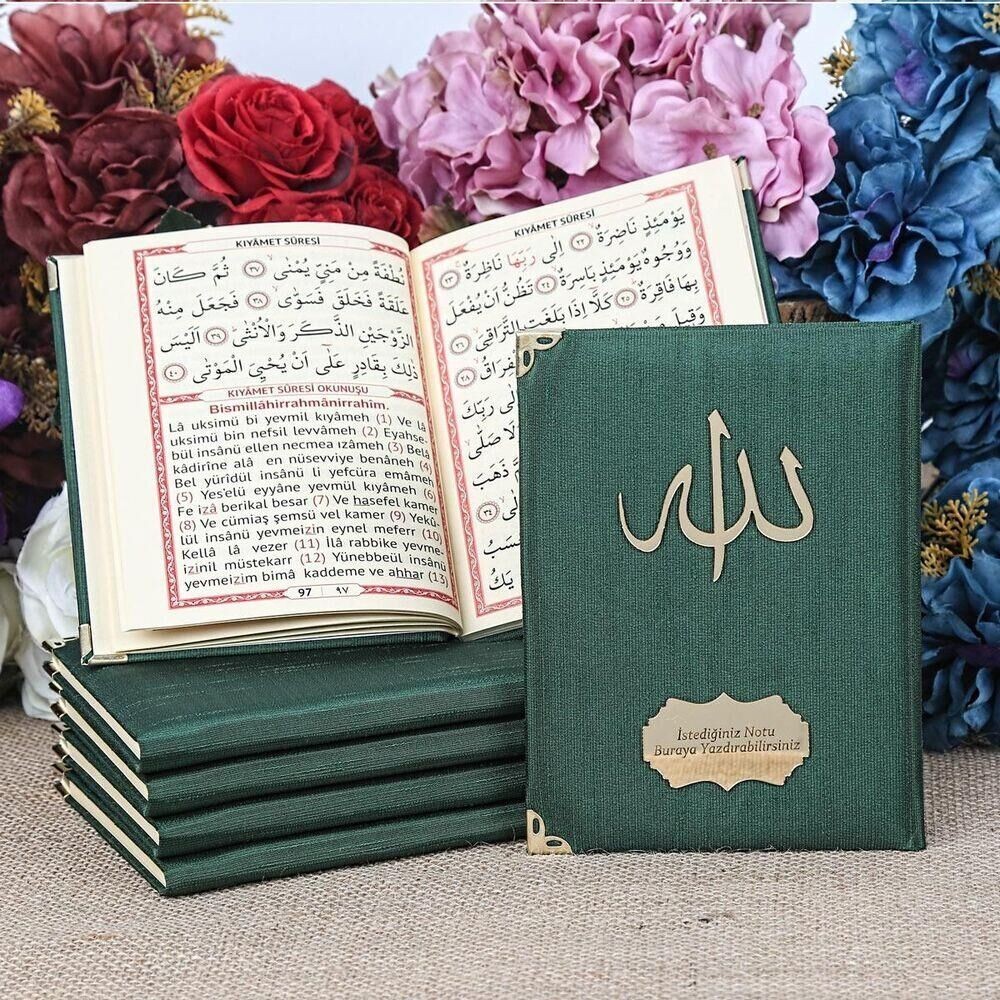 KIYÂMET SÛRESİ
نُطْفَةً مِنْ مَنِيٍّ يُمْنٰىۙ ﴿٣٧﴾ ثُمَّ كَانَ
عَلَقَةً فَخَلَقَ فَسَوّٰىۙ ﴿٣٨﴾ فَجَعَلَ مِنْهُ
الزَّوْجَيْنِ الذَّكَرَ وَالْاُنْثٰىۜ ﴿٣٩﴾ اَلَيْسَ
ذٰلِكَ بِقَادِرٍ عَلٰٓى اَنْ يُحْيِيَ الْمَوْتٰى ﴿٤٠﴾
KIYÂMET SÛRESİ OKUNUŞU
Bismillâhirrahmânirrahîm.
Lâ uksimü bi yevmil kıyâmeh (1) Ve lâ
uksimü bin nefsil levvâmeh (2) Eyahse-
bül insânü ellen necmea ızâmeh (3) Belâ
kâdirîne alâ en nüsevviye benâneh (4)
Bel yürîdül insânü li yefcüra emâmeh
(5) Yes'elü eyyâne yevmül kıyâmeh (6)
Fe izâ berikal besar (7) Ve hasefel kamer
(8) Ve cümiaş şemsü vel kamer (9) Yekû-
lül insânü yevmeizin eynel meferr (10)
Kellâ lâ vezer (11) İlâ rabbike yevme-
izinil müstekarr (12) Yünebbeül insânü
yevmeizim bimâ kaddeme ve ahhar (13)
97 ٩٧
KIYÂMET SÛRESİ
يَوْمَئِذٍ نَاضِرَةٌۙ ﴿٢٢﴾ اِلٰى رَبِّهَا نَاظِرَةٌۚ ﴿٢٣﴾
وَوُجُوهٌ يَوْمَئِذٍ بَاسِرَةٌۙ ﴿٢٤﴾ تَظُنُّ اَنْ يُفْعَلَ
بِهَا فَاقِرَةٌۜ ﴿٢٥﴾ كَلَّٓا اِذَا بَلَغَتِ التَّرَاقِيَۙ ﴿٢٦﴾
وَقِيلَ
الْفِرَاقُۙ ﴿٢٨﴾
اِلٰى رَبِّكَ
وَلَا صَلّٰىۙ
ذَهَبَ
﴿٣٤﴾
يَكُ
الله
İstediğiniz Notu
Buraya Yazdırabilirsiniz